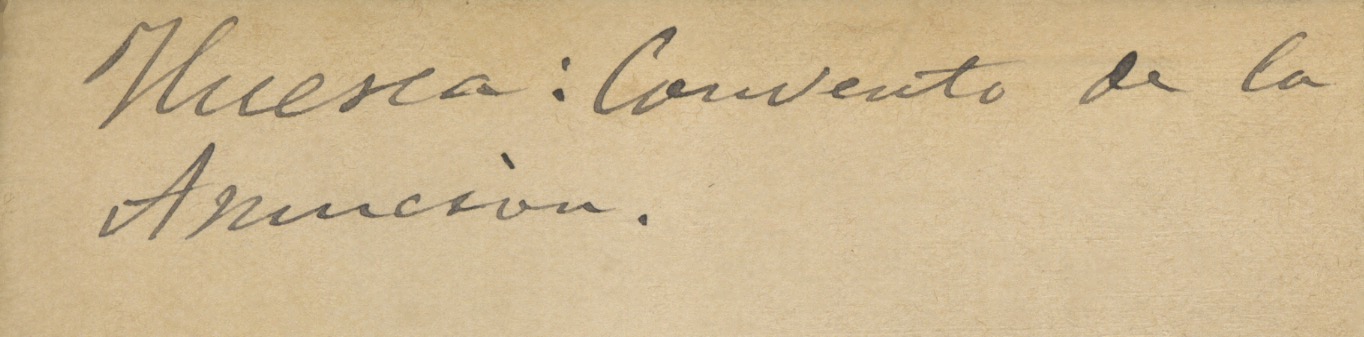 Huesca: Convento de la
Asuncion.